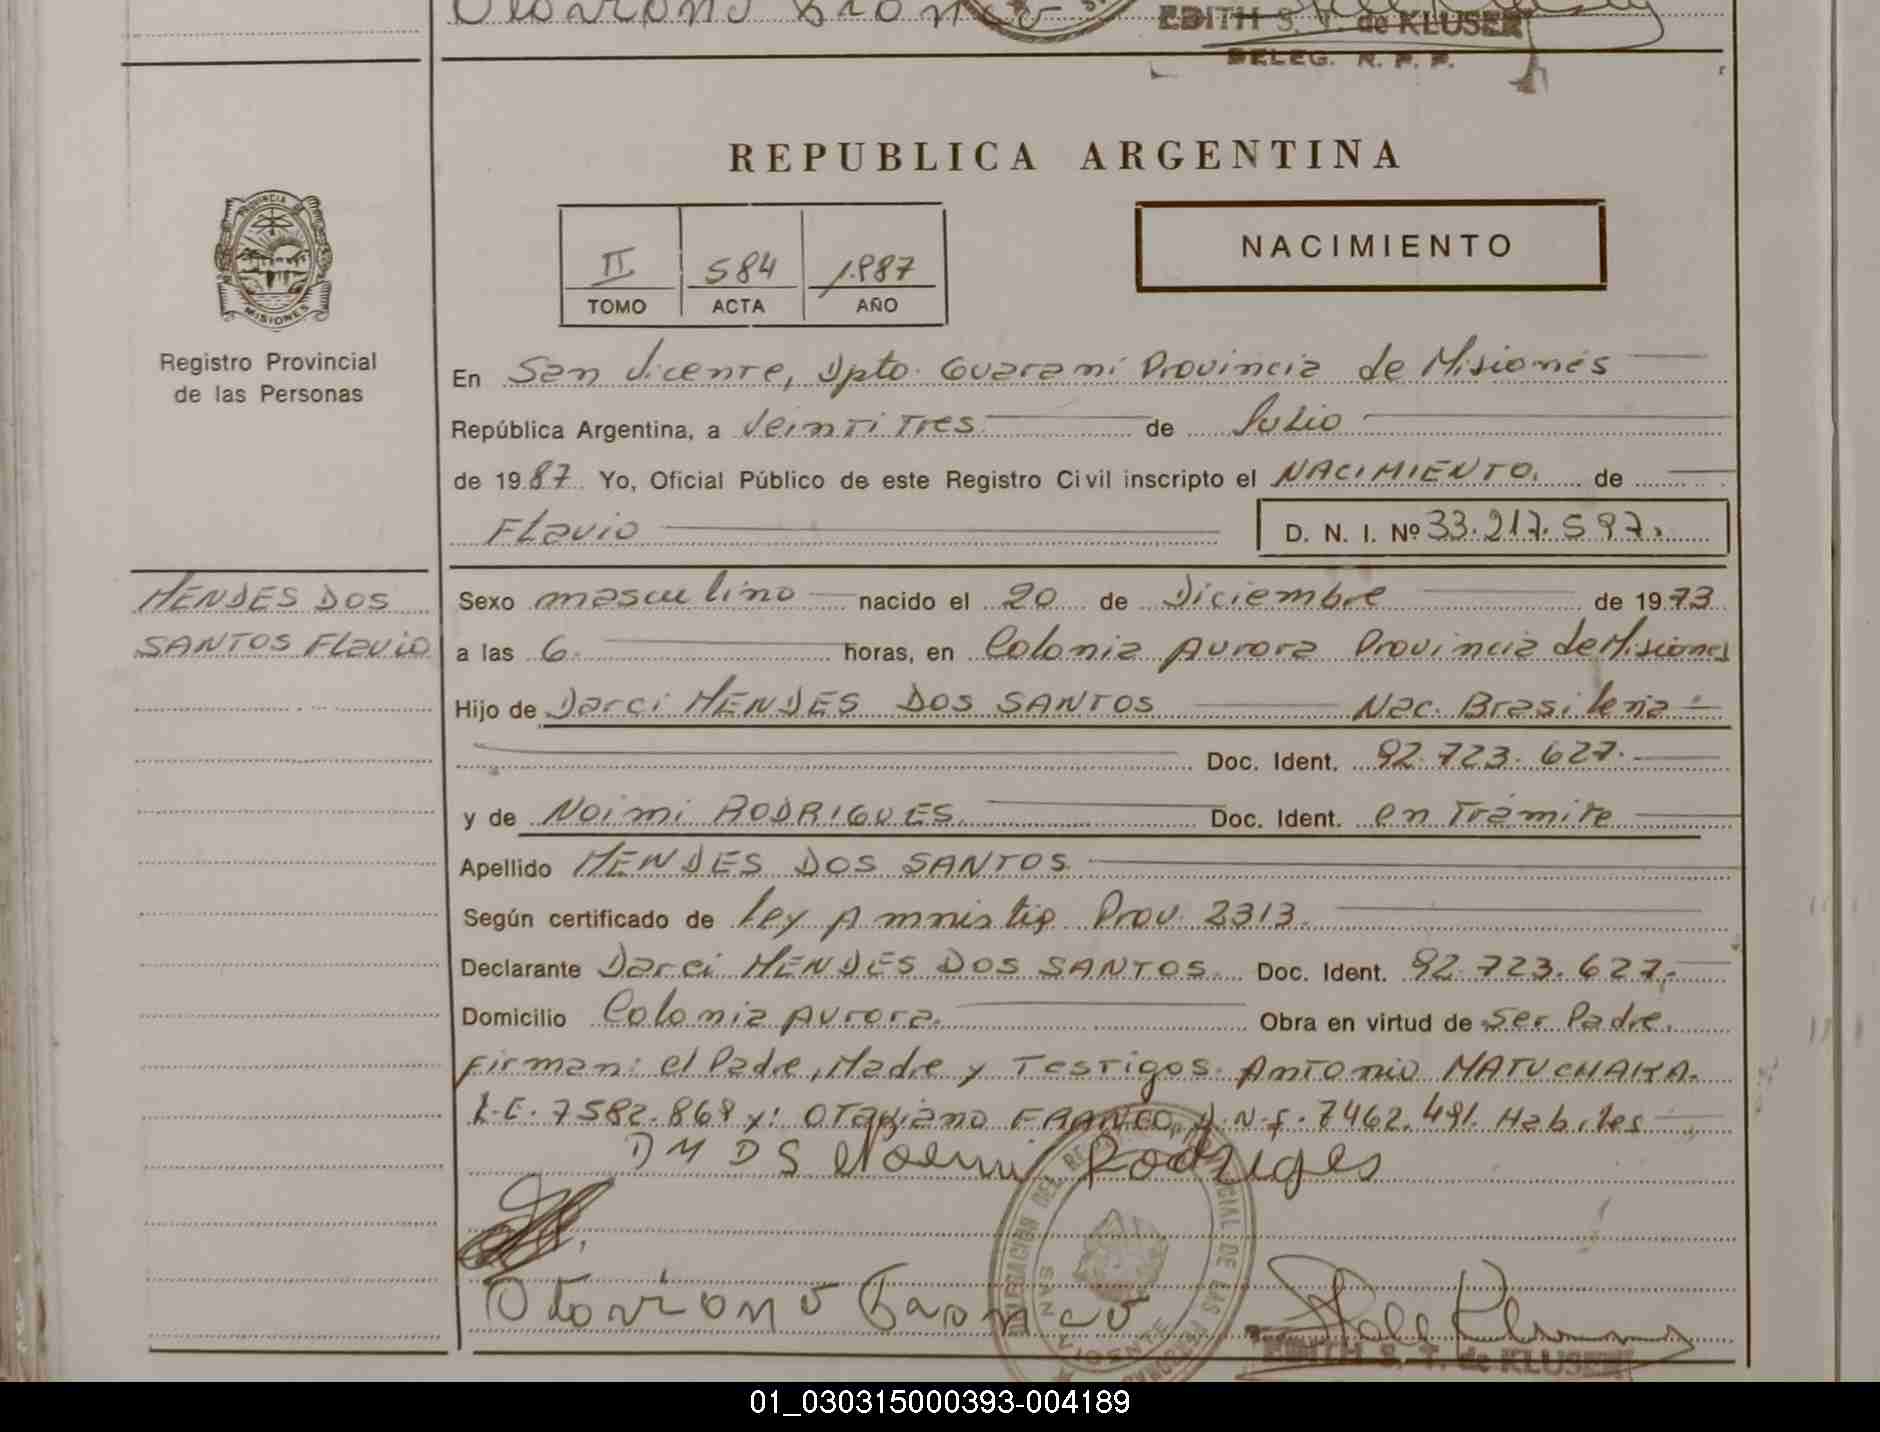 Otaviano Franco
EDITH S. T. de KLUSER
DELEG. R. P. P.
REPUBLICA ARGENTINA
PROVINCIA DE
MISIONES
Registro Provincial
de las Personas
II 584 1987
TOMO ACTA AÑO
NACIMIENTO
En San Vicente, Dpto. Guarani Provincia de Misiones
República Argentina, a Veintitres de Julio
de 1987 Yo, Oficial Público de este Registro Civil inscripto el NACIMIENTO. de
Flavio D. N. I. Nº 33.217.597.
MENDES DOS
SANTOS Flavio
Sexo masculino nacido el 20 de Diciembre de 1973
a las 6. horas, en Colonia Aurora Provincia de Misiones
Hijo de Darci MENDES DOS SANTOS Nac. Brasileña
Doc. Ident. 92.723.627.
y de Noimi RODRIGUES. Doc. Ident. en Trámite
Apellido MENDES DOS SANTOS
Según certificado de Ley Amnistia Prov. 2313.
Declarante Darci MENDES DOS SANTOS Doc. Ident. 92.723.627.
Domicilio Colonia Aurora. Obra en virtud de Ser Padre.
Firman: el Padre, Madre y Testigos. Antonio MATUCHAKA.
L.E. 7582.868 y: Otaviano FRANCO D.N.I. 7462.491. Habiles
D M D S Noemi Rodriges
Otaviano Franco
DELEGACION DEL REGISTRO PROVINCIAL DE LAS PERSONAS
SAN VICENTE
EDITH S. T. de KLUSER
01_030315000393-004189